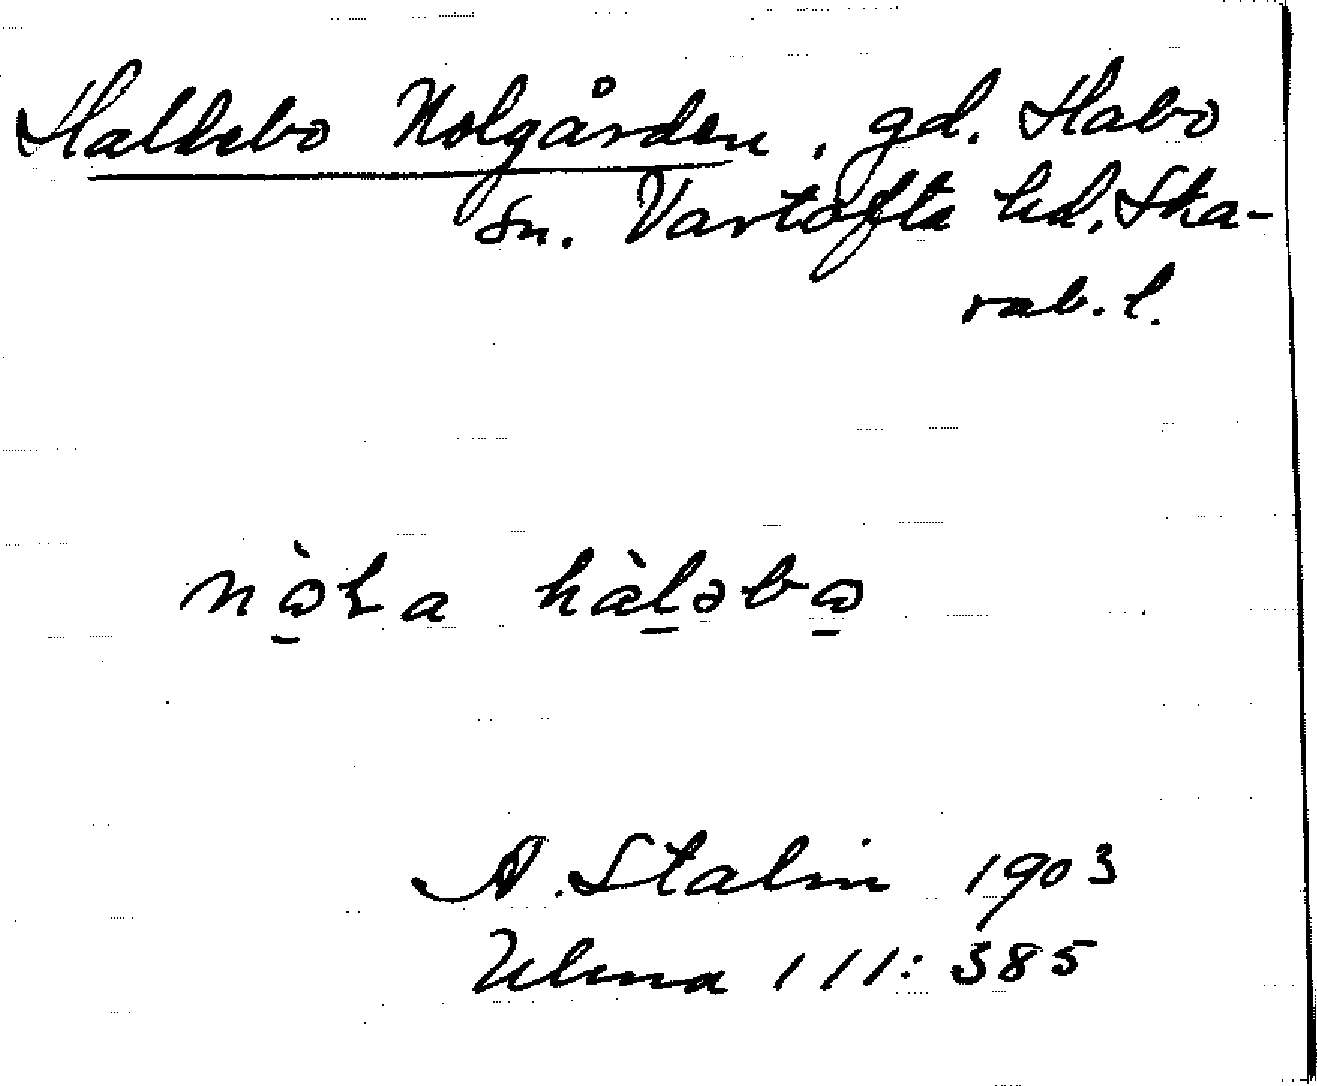 Hallebo Nolgården, gd. Habo
sn. Vartofta hd, Ska-
rab. l.
hàləbo
A. Stalin 1903
Ulma 111:385